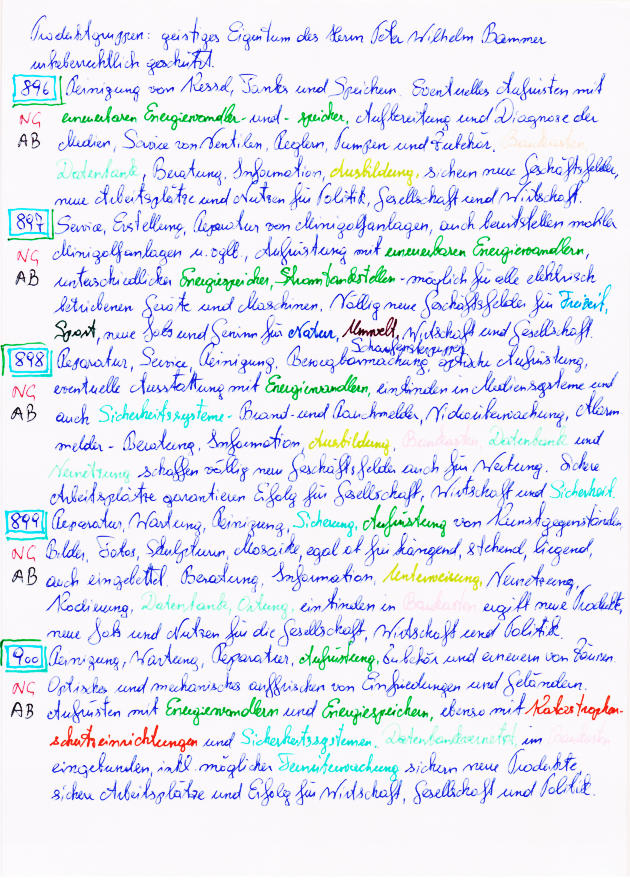 Produktgruppen: geistiges Eigentum des Herrn Peter Wilhelm Bammer
urheberrechtlich geschützt.
896 Reinigung von Kessel, Tanks und Speichern. Eventuelles Aufrüsten mit
NG erneuerbaren Energiewandler- und -speicher, Aufbereitung und Diagnose der
AB Medien, Service von Ventilen, Reglern, Pumpen und Zubehör. Baukasten,
Datenbank, Beratung, Information, Ausbildung, sichern neue Geschäftsfelder,
neue Arbeitsplätze und Nutzen für Politik, Gesellschaft und Wirtschaft.
897 Service, Erstellung, Reparatur von Minigolfanlagen, auch bereitstellen mobiler
NG Minigolfanlagen u. vglb., Aufrüstung mit erneuerbaren Energiewandlern,
AB unterschiedlicher Energiespeicher, Stromtankstellen - möglich für alle elektrisch
betriebenen Geräte und Maschinen, Völlig neue Geschäftsfelder für Freizeit,
Sport, neue Jobs und Gewinn für Natur, Umwelt, Wirtschaft und Gesellschaft.
Schaufensterpuppen
898 Reparatur, Service, Reinigung, Bewegbarmachung, optische Aufrüstung,
NG eventuelle Ausstattung mit Energiewandlern, einbinden in Mediensysteme und
AB auch Sicherheitssysteme - Brand- und Rauchmelder, Videoüberwachung, Alarm
melder - Beratung, Information, Ausbildung, Baukasten, Datenbank und
Vernetzung schaffen völlig neue Geschäftsfelder auch für Werbung. Sichere
Arbeitsplätze garantieren Erfolg für Gesellschaft, Wirtschaft und Sicherheit.
899 Reparatur, Wartung, Reinigung, Sicherung, Aufrüstung von Kunstgegenständen,
NG Bilder, Fotos, Skulpturen, Mosaike, egal ob frei hängend, stehend, liegend,
AB auch eingebettet. Beratung, Information, Unterweisung, Vernetzung,
Kodierung, Datenbank, Ortung, einbinden in Baukasten ergibt neue Produkte,
neue Jobs und Nutzen für die Gesellschaft, Wirtschaft und Politik.
900 Reinigung, Wartung, Reparatur, Aufrüstung, Zubehör und erneuern von Zäunen.
NG Optisches und mechanisches auffrischen von Einfriedungen und Geländern.
AB Aufrüsten mit Energiewandlern und Energiespeichern, ebenso mit Katastrophen-
schutzeinrichtungen und Sicherheitssystemen. Datenbankvernetzt, im Baukasten
eingebunden, inkl. möglicher Fernüberwachung sichern neue Produkte,
sichere Arbeitsplätze und Erfolg für Wirtschaft, Gesellschaft und Politik.